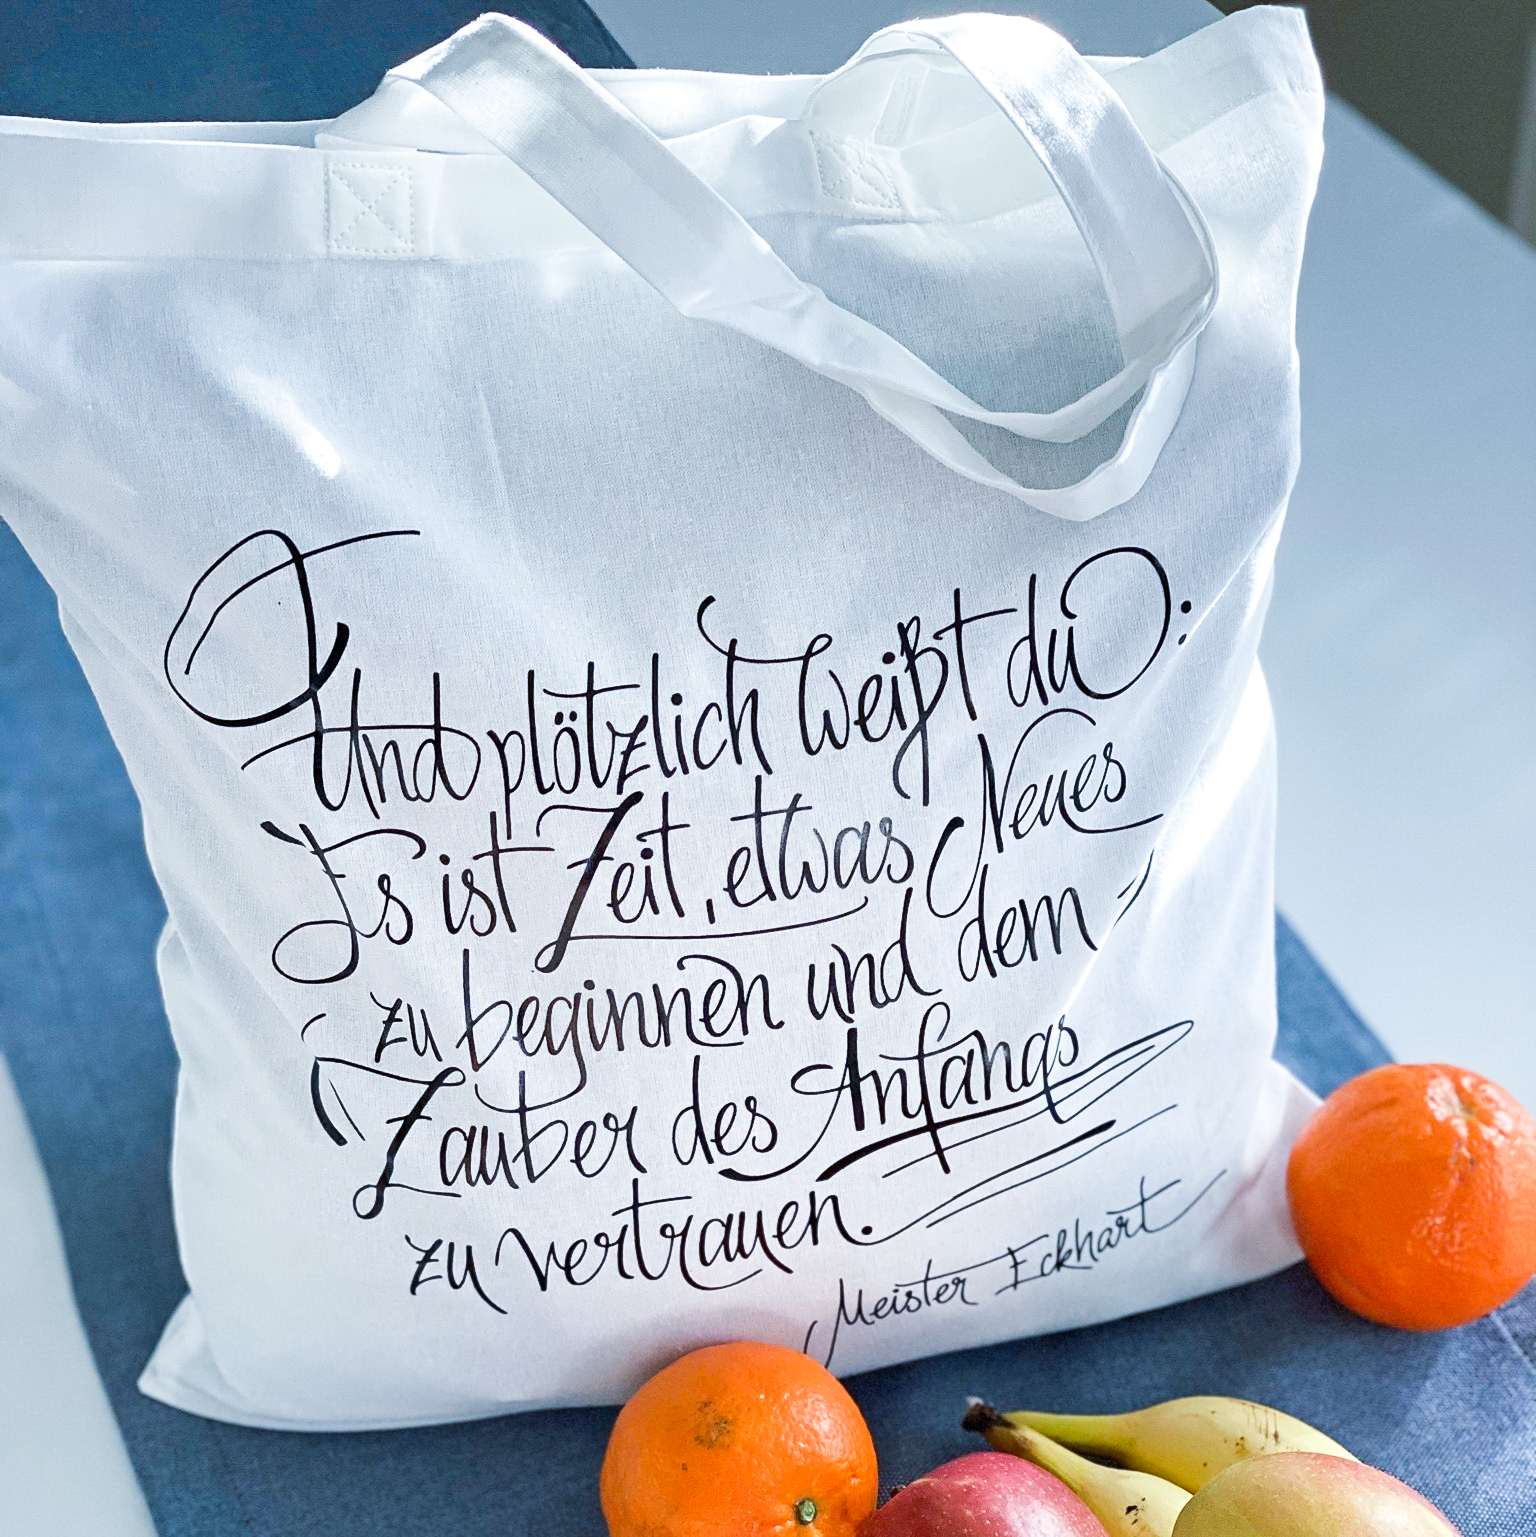 Und plötzlich weißt du:
Es ist Zeit, etwas Neues
zu beginnen und dem
Zauber des Anfangs
zu vertrauen.
Meister Eckhart